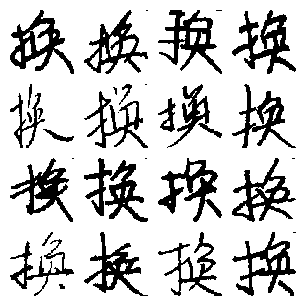 换换换换
换换换换
换换换换
换换换换